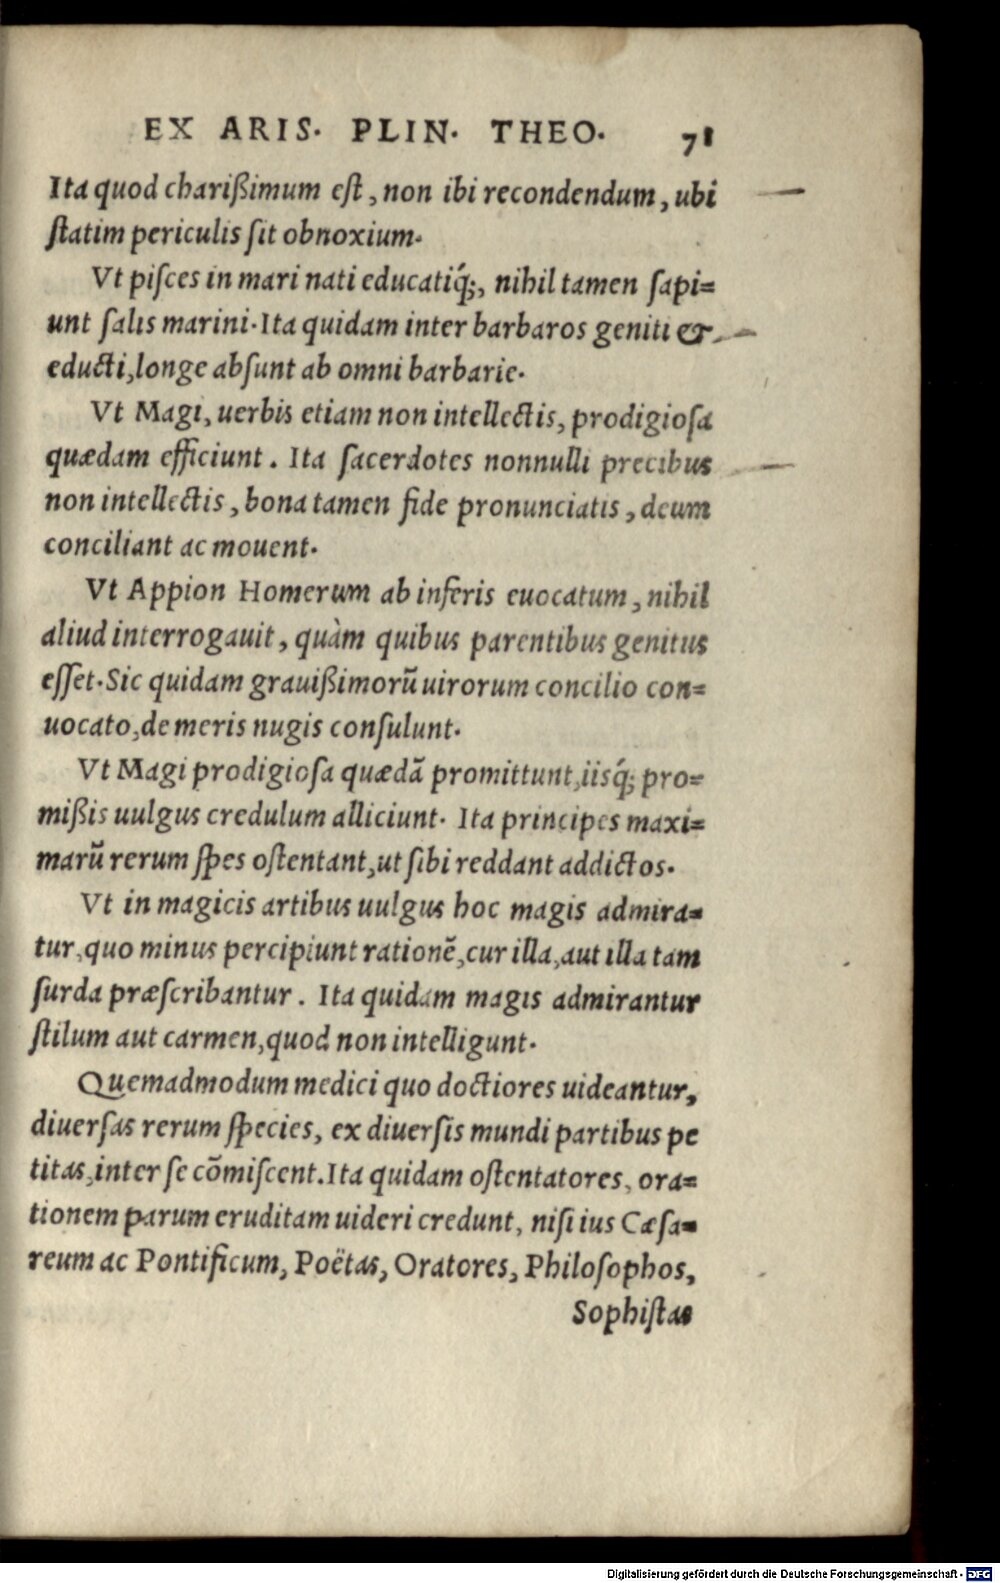 EX ARIS. PLIN. THEO. 71
Ita quod charißimum eſt, non ibi recondendum, ubi
ſtatim periculis ſit obnoxium.
Vt piſces in mari nati educatiq́;, nihil tamen ſapi=
unt ſalis marini. Ita quidam inter barbaros geniti &
educti, longe abſunt ab omni barbarie.
Vt Magi, uerbis etiam non intellectis, prodigioſa
quædam efficiunt. Ita ſacerdotes nonnulli precibus
non intellectis, bona tamen fide pronunciatis, deum
conciliant ac mouent.
Vt Appion Homerum ab inferis euocatum, nihil
aliud interrogauit, quàm quibus parentibus genitus
eſſet. Sic quidam grauißimorũ uirorum concilio con=
uocato, de meris nugis conſulunt.
Vt Magi prodigioſa quædã promittunt, iisq́; pro=
mißis uulgus credulum alliciunt. Ita principes maxi=
marũ rerum ſpes oſtentant, ut ſibi reddant addictos.
Vt in magicis artibus uulgus hoc magis admira=
tur, quo minus percipiunt rationẽ, cur illa, aut illa tam
ſurda præſcribantur. Ita quidam magis admirantur
ſtilum aut carmen, quod non intelligunt.
Quemadmodum medici quo doctiores uideantur,
diuerſas rerum ſpecies, ex diuerſis mundi partibus pe
titas, inter ſe cõmiſcent. Ita quidam oſtentatores, ora=
tionem parum eruditam uideri credunt, niſi ius Cæſa=
reum ac Pontificum, Poëtas, Oratores, Philoſophos,
Sophiſtas
Digitalisierung gefördert durch die Deutsche Forschungsgemeinschaft - DFG